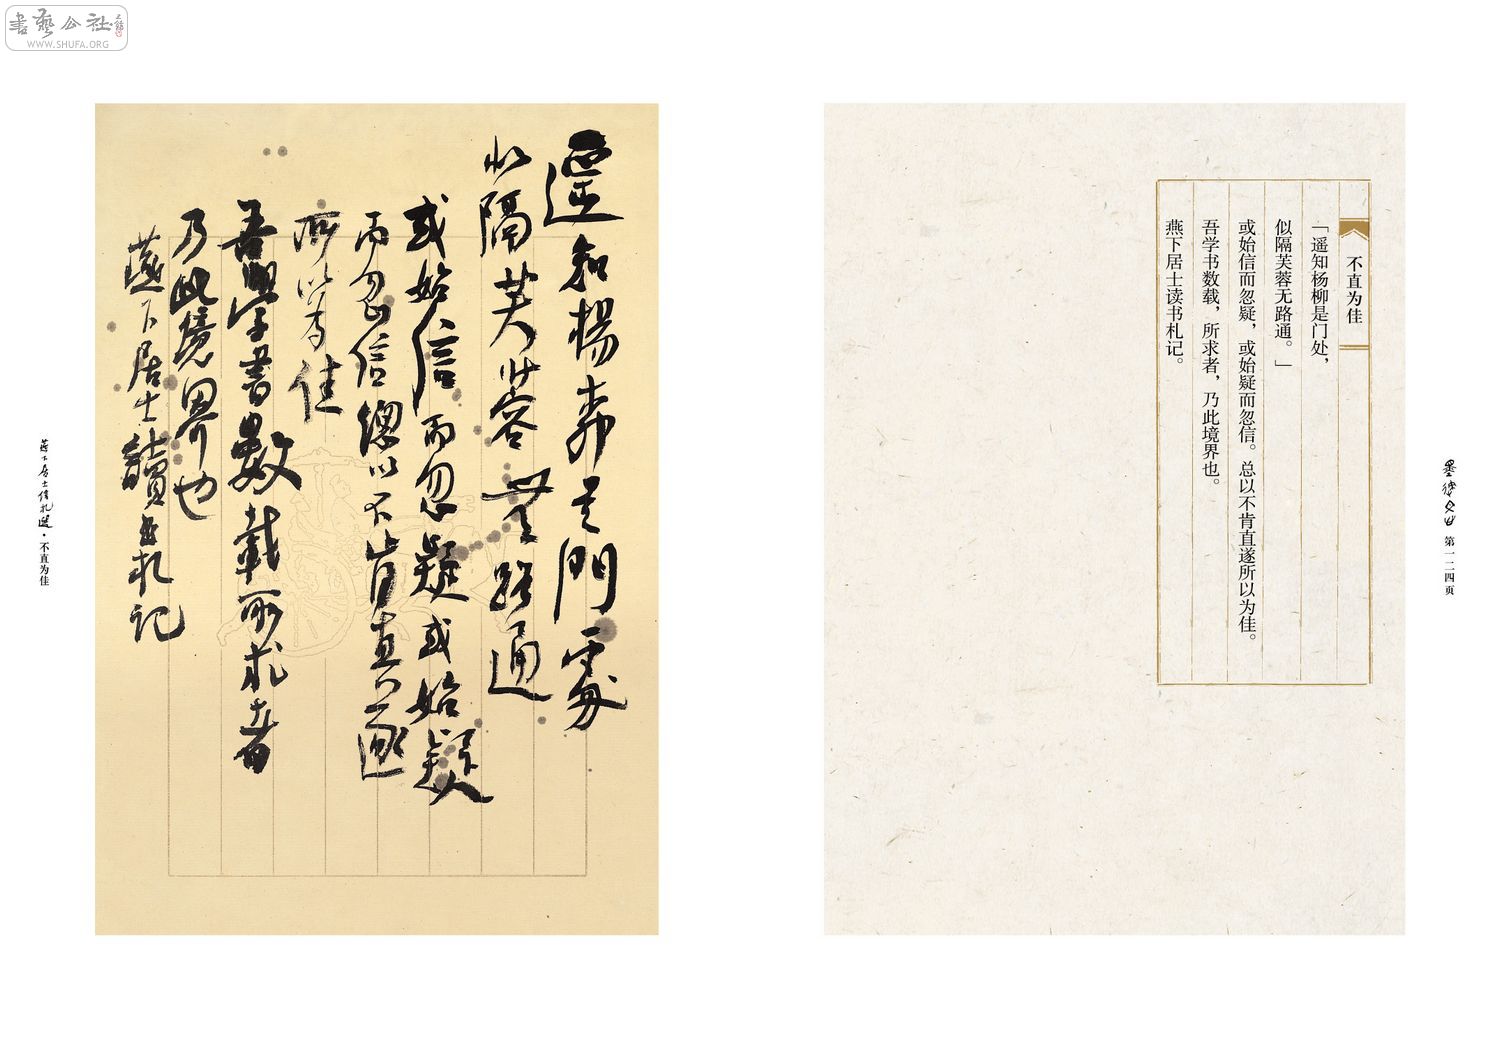 書藝公社
WWW.SHUFA.ORG
遥知楊柳是門處
似隔芙蓉無路通
或始信而忽疑或始疑
而忽信總以不肯直遂
所以為佳
吾學書數載所求者
乃此境界也
燕下居士讀書札記
燕下居士信札選·不直为佳
不直为佳
「遥知杨柳是门处，
似隔芙蓉无路通。」
或始信而忽疑，或始疑而忽信。总以不肯直遂所以为佳。
吾学书数载，所求者，乃此境界也。
燕下居士读书札记。
第一二四页